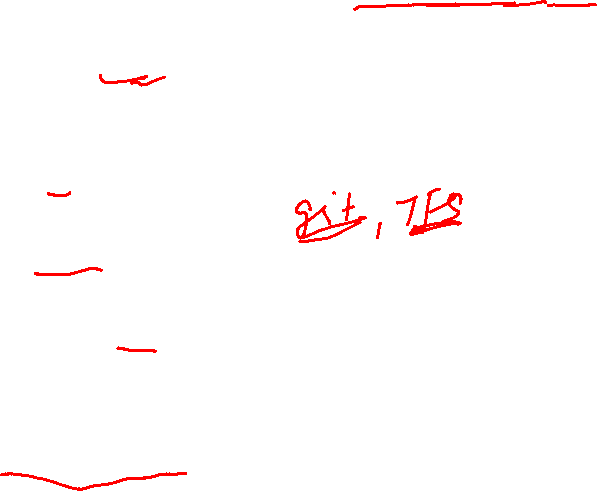 git, TFS